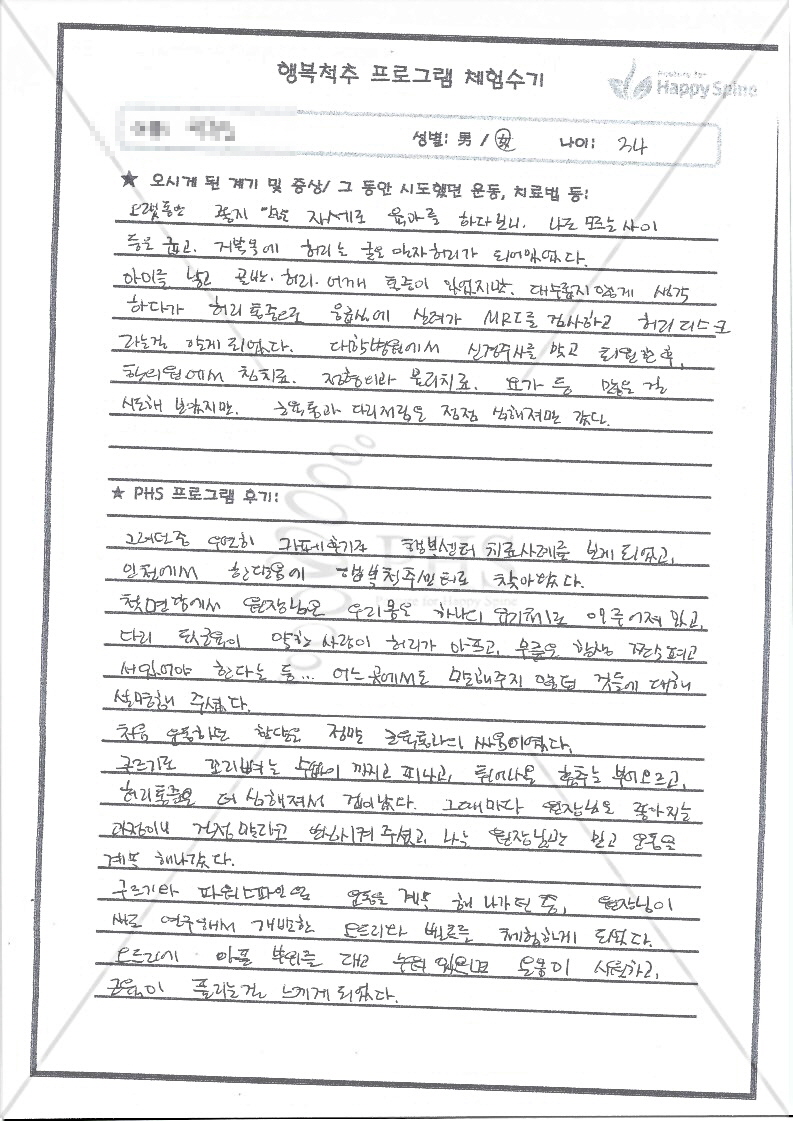 행복척추 프로그램 체험수기
Posture for
Happy Spine
성별: 男 / 女 나이: 34
★ 오시게 된 계기 및 증상/ 그 동안 시도했던 운동, 치료법 등:
오랫동안 좋지 않은 자세로 육아를 하다보니. 나도 모르는 사이
등은 굽고. 거북목에 허리는 굴은 일자허리가 되어있었다.
아이를 낳고 골반. 허리. 어깨 통증이 있었지만. 대수롭지 않게 생각
하다가 허리통증으로 응급실에 실려가 MRI를 검사하고 허리디스크
라는걸 알게 되었다. 대학병원에서 신경주사를 맞고 퇴원한 후,
한의원에서 침치료. 정형외과 물리치료. 요가 등 많은 걸
시도해 보았지만. 근육통과 다리저림은 점점 심해져만 갔다.
★ PHS 프로그램 후기:
그러던중 우연히 카페후기로 행복센터 치료사례를 보게 되었고,
인천에서 한달음에 행복척추센터로 찾아왔다.
첫면담에서 원장님은 우리몸은 하나의 유기체로 이루어져 있고,
다리 뒤근육이 약한 사람이 허리가 아프고, 무릎은 항상 쫙쫙펴고
서있어야 한다는 등... 어느곳에서도 말해주지 않던 것들에 대해
설명해 주셨다.
처음 운동하는 한달은 정말 근육통과의 싸움이였다.
구르기로 꼬리뼈는 수없이 까지고 피나고, 튀어나온 흉추는 부어오르고,
허리통증은 더 심해져서 겁이났다. 그때마다 원장님은 좋아지는
과정이니 걱정말라고 안심시켜 주셨고, 나는 원장님만 믿고 운동을
계속 해나갔다.
구르기와 파워스파인업 운동을 계속 해 나가던 중, 원장님이
새로 연구해서 개발한 도트리와 벨로를 체험하게 되었다.
도트리에 아픈 부위를 대고 누워 있으면 온몸이 시원하고,
근육이 풀리는걸 느끼게 되었다.